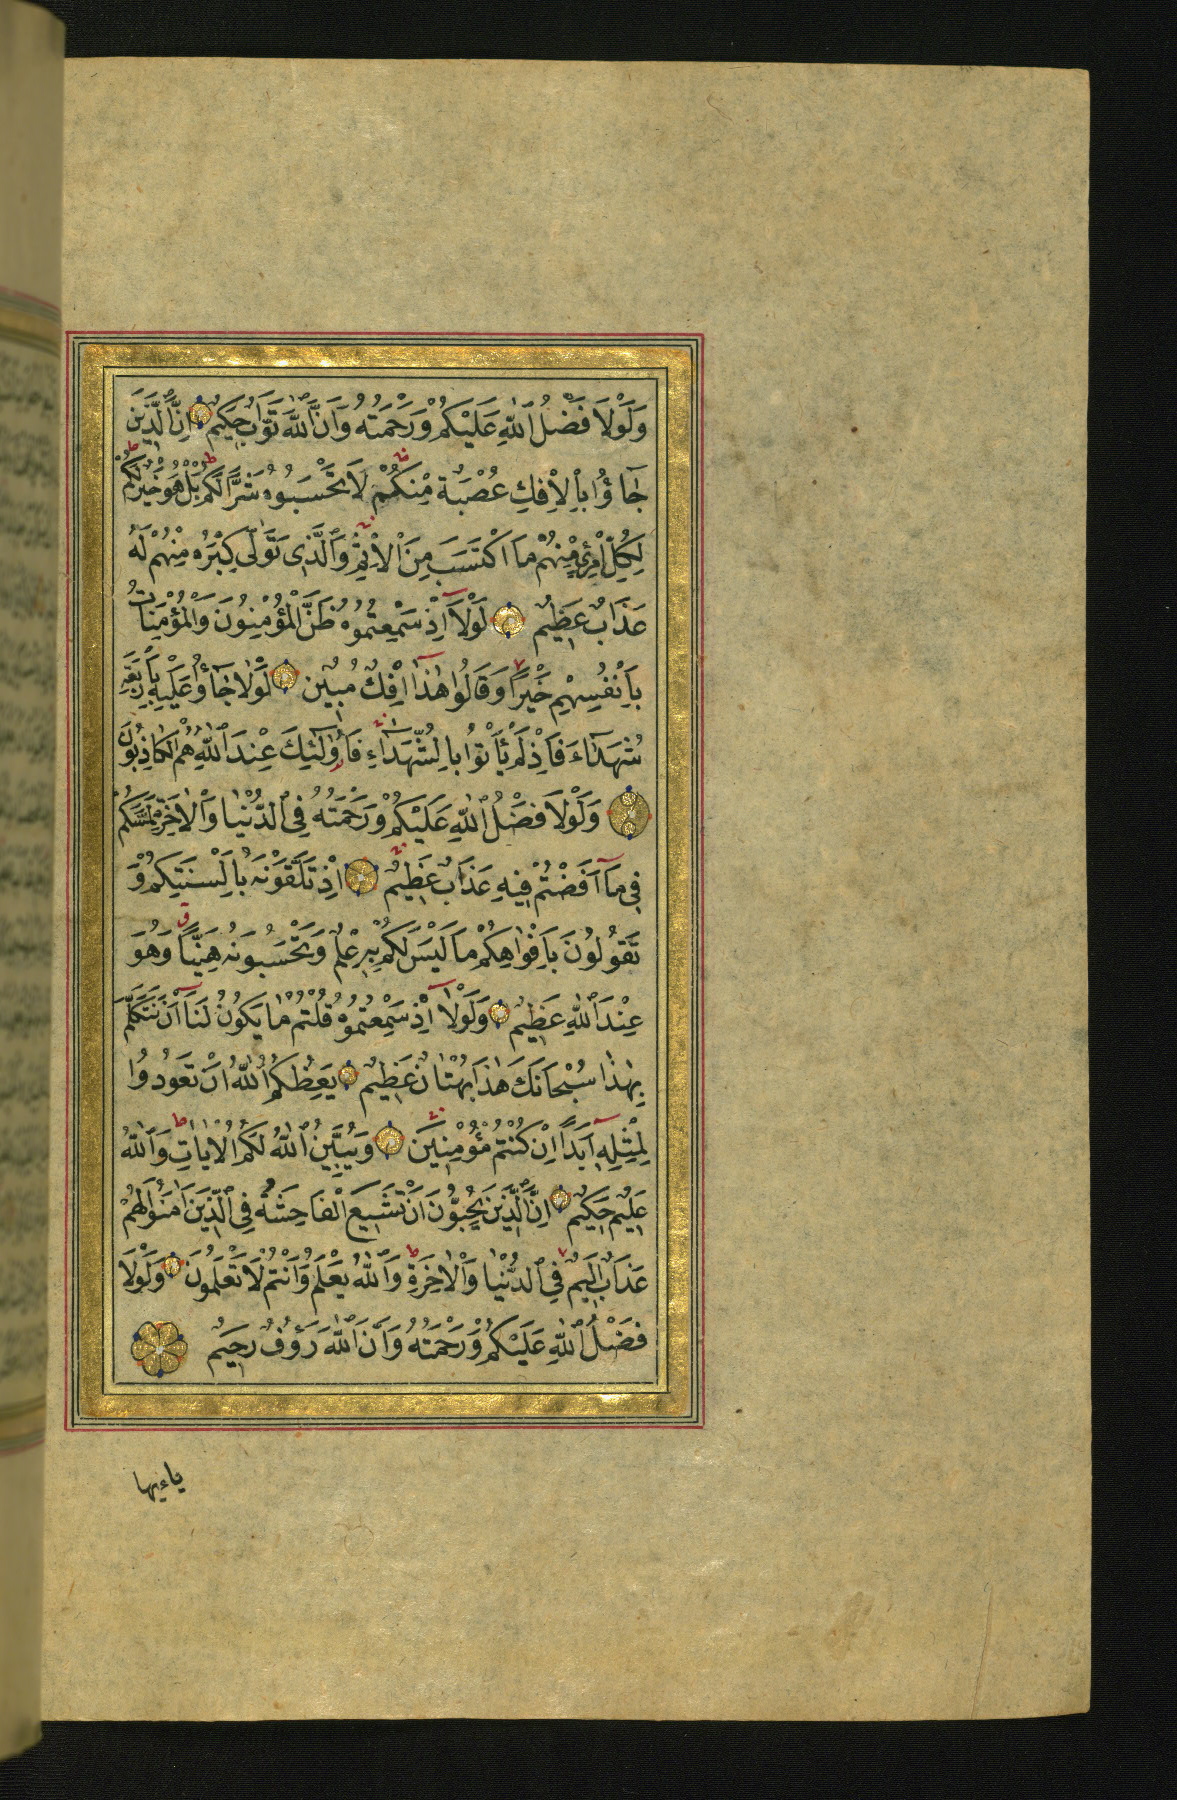 وَلَوْلَا فَضْلُ اللّٰهِ عَلَيْكُمْ وَرَحْمَتُهُ وَاَنَّ اللّٰهَ تَوَّابٌ حَكِيمٌ اِنَّ الَّذِينَ
جَاؤُا بِالْاِفْكِ عُصْبَةٌ مِنْكُمْ لَا تَحْسَبُوهُ شَرًّا لَكُمْ بَلْ هُوَ خَيْرٌ لَكُمْ
لِكُلِّ امْرِئٍ مِنْهُمْ مَا اكْتَسَبَ مِنَ الْاِثْمِ وَالَّذِى تَوَلّٰى كِبْرَهُ مِنْهُمْ لَهُ
عَذَابٌ عَظِيمٌ لَوْلَآ اِذْ سَمِعْتُمُوهُ ظَنَّ الْمُؤْمِنُونَ وَالْمُؤْمِنَاتُ
بِاَنْفُسِهِمْ خَيْرًا وَقَالُوا هٰذَآ اِفْكٌ مُبِينٌ لَوْلَا جَآؤُا عَلَيْهِ بِاَرْبَعَةِ
شُهَدَآءَ فَاِذْ لَمْ يَأْتُوا بِالشُّهَدَآءِ فَاُولٰئِكَ عِنْدَ اللّٰهِ هُمُ الْكَاذِبُونَ
وَلَوْلَا فَضْلُ اللّٰهِ عَلَيْكُمْ وَرَحْمَتُهُ فِى الدُّنْيَا وَالْاٰخِرَةِ لَمَسَّكُمْ
فِى مَآ اَفَضْتُمْ فِيهِ عَذَابٌ عَظِيمٌ اِذْ تَلَقَّوْنَهُ بِاَلْسِنَتِكُمْ وَ
تَقُولُونَ بِاَفْوَاهِكُمْ مَا لَيْسَ لَكُمْ بِهِ عِلْمٌ وَتَحْسَبُونَهُ هَيِّنًا وَهُوَ
عِنْدَ اللّٰهِ عَظِيمٌ وَلَوْلَآ اِذْ سَمِعْتُمُوهُ قُلْتُمْ مَا يَكُونُ لَنَآ اَنْ نَتَكَلَّمَ
بِهٰذَا سُبْحَانَكَ هٰذَا بُهْتَانٌ عَظِيمٌ يَعِظُكُمُ اللّٰهُ اَنْ تَعُودُوا
لِمِثْلِهِ اَبَدًا اِنْ كُنْتُمْ مُؤْمِنِينَ وَيُبَيِّنُ اللّٰهُ لَكُمُ الْاٰيَاتِ وَاللّٰهُ
عَلِيمٌ حَكِيمٌ اِنَّ الَّذِينَ يُحِبُّونَ اَنْ تَشِيعَ الْفَاحِشَةُ فِى الَّذِينَ اٰمَنُوا لَهُمْ
عَذَابٌ اَلِيمٌ فِى الدُّنْيَا وَالْاٰخِرَةِ وَاللّٰهُ يَعْلَمُ وَاَنْتُمْ لَا تَعْلَمُونَ وَلَوْلَا
فَضْلُ اللّٰهِ عَلَيْكُمْ وَرَحْمَتُهُ وَاَنَّ اللّٰهَ رَؤُفٌ رَحِيمٌ
ياءيها